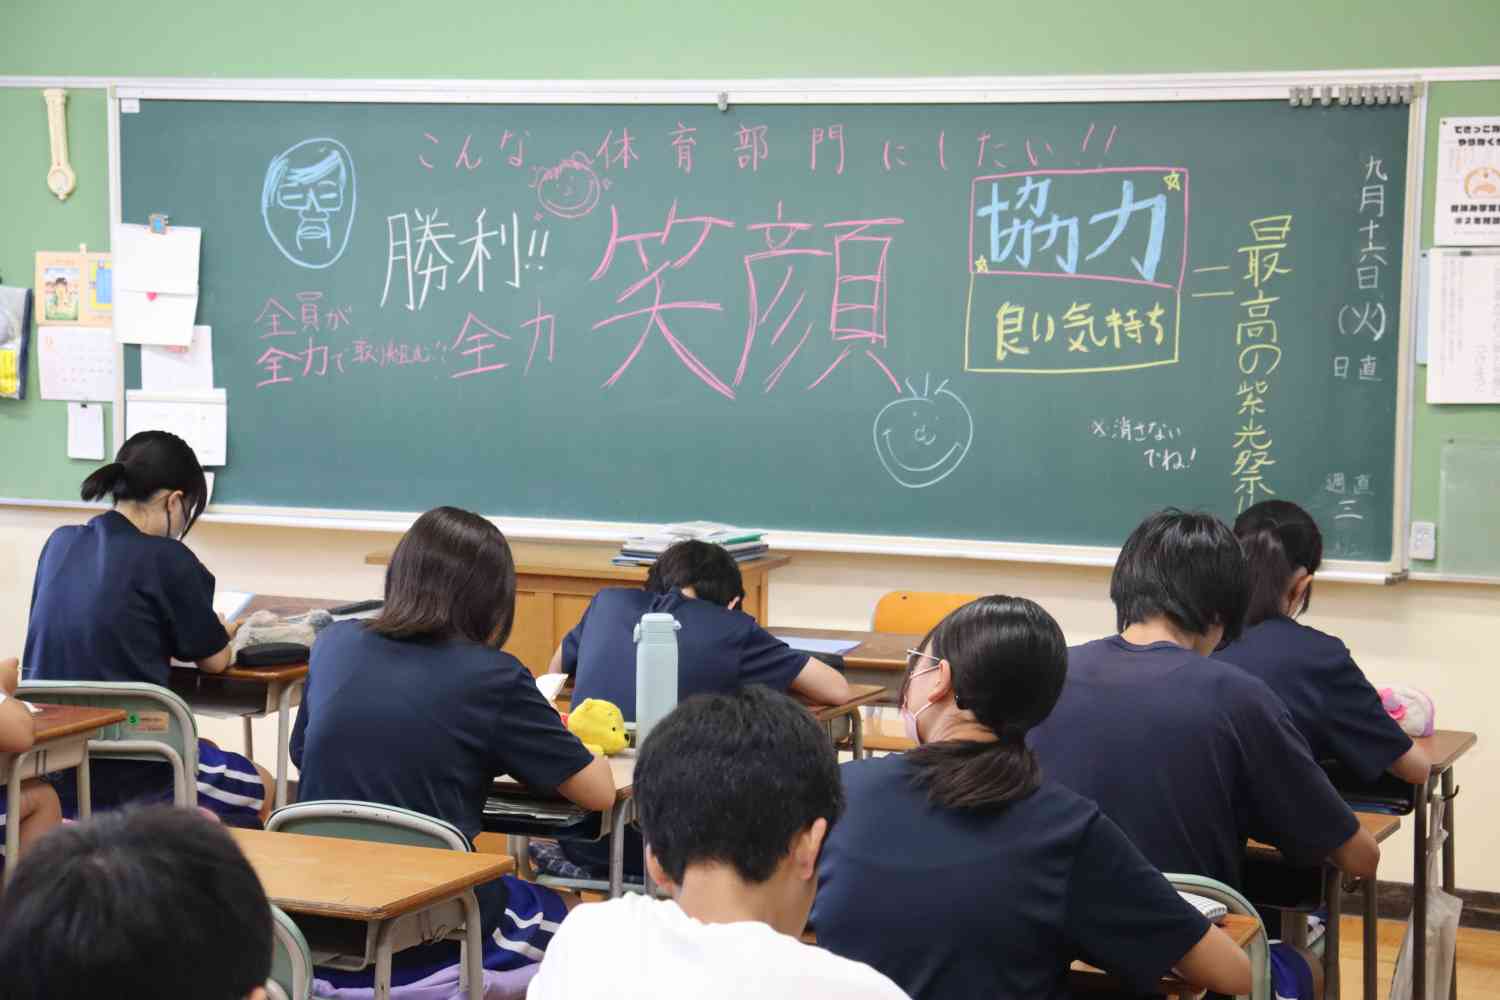 こんな体育部門にしたい!!
勝利!!
笑顔
全員が
全力で取り組む!!
全力
協力
良い気持ち
=
最高の紫光祭!!
※消さない
でね!
九月十六日(火)
日直
週直
三
てさっこう
やきゅうぶ